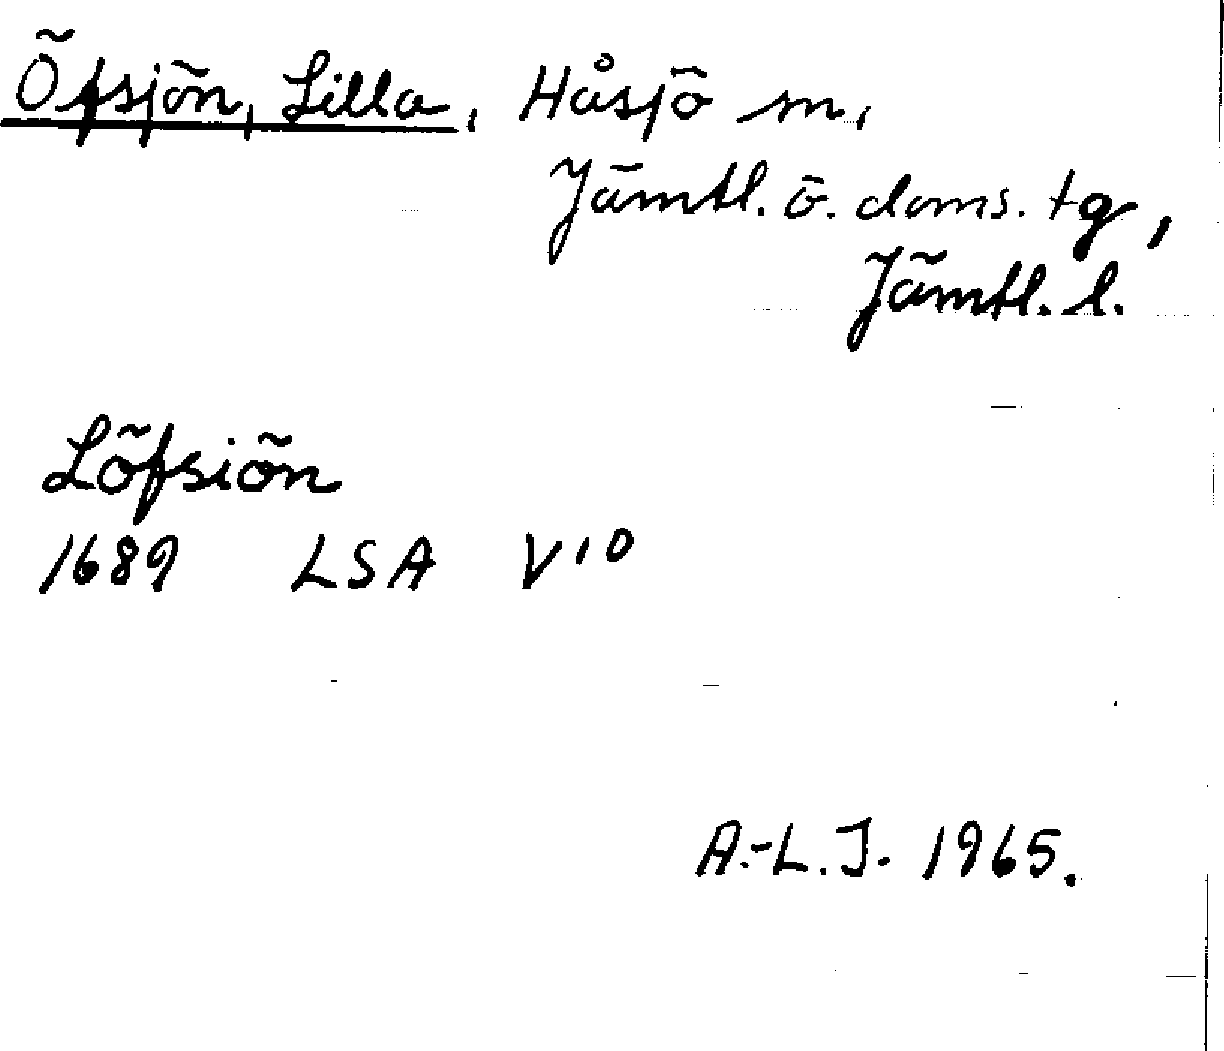 Öfsjön, Lilla, Håsjö sn,
Jämtl. ö. doms. tg,
Jämtl. l.
Löfsiön
1689 LSA V10
A.-L.J. 1965.